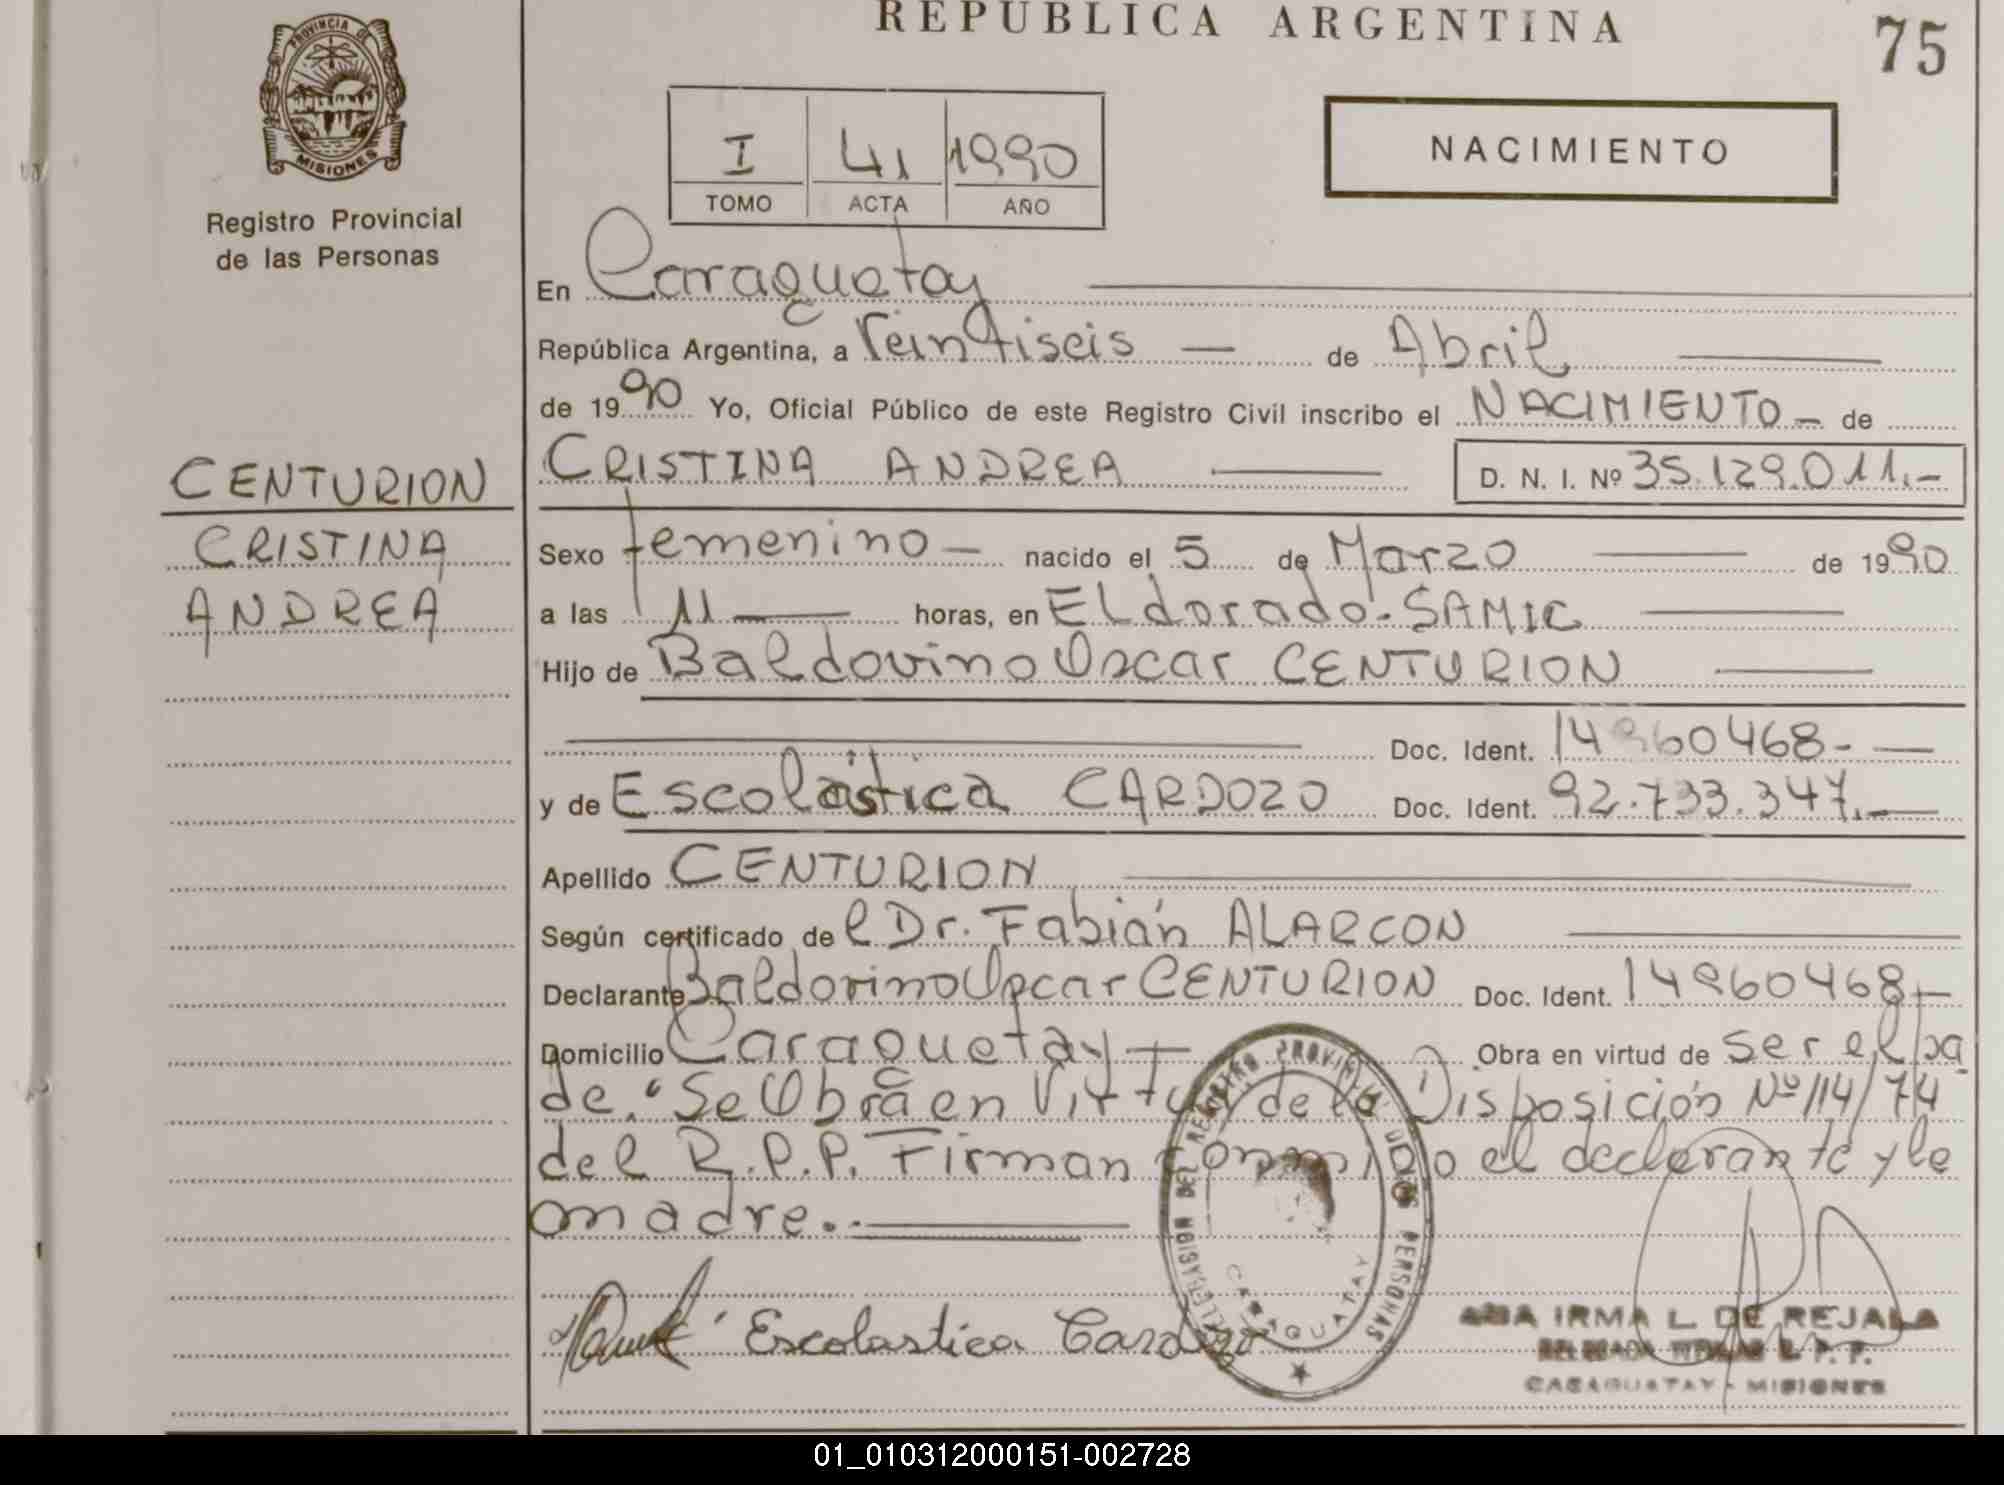 REPUBLICA ARGENTINA
75
PROVINCIA DE
MISIONES
Registro Provincial
de las Personas
I 41 1990
TOMO ACTA AÑO
NACIMIENTO
En Caraguatay
República Argentina, a Veintiseis — de Abril
de 1990 Yo, Oficial Público de este Registro Civil inscribo el NACIMIENTO — de
CENTURION
CRISTINA
ANDREA
CRISTINA ANDREA D. N. I. Nº 35.129.011.-
Sexo femenino — nacido el 5 de Marzo de 1990
a las 11 horas, en ELdorado. SAMIC
Hijo de Baldovino Oscar CENTURION
Doc. Ident. 14960468-
y de Escolástica CARDOZO Doc. Ident. 92.733.347.-
Apellido CENTURION
Según certificado de l Dr. Fabián ALARCON
Declarante Baldovino Oscar CENTURION Doc. Ident. 14960468-
Domicilio Caraguatay Obra en virtud de ser el pa
de. Se Obra en Virtud de la Disposición Nº 114/74
del R.P.P. Firman conmigo el declarante y la
madre.-
DELEGACION DEL REGISTRO PROVINCIAL DE LAS PERSONAS
CARAGUATAY
Escolastica Cardozo
ANA IRMA L. DE REJALA
DELEGADA TITULAR R. P. P.
CARAGUATAY - MISIONES
01_010312000151-002728